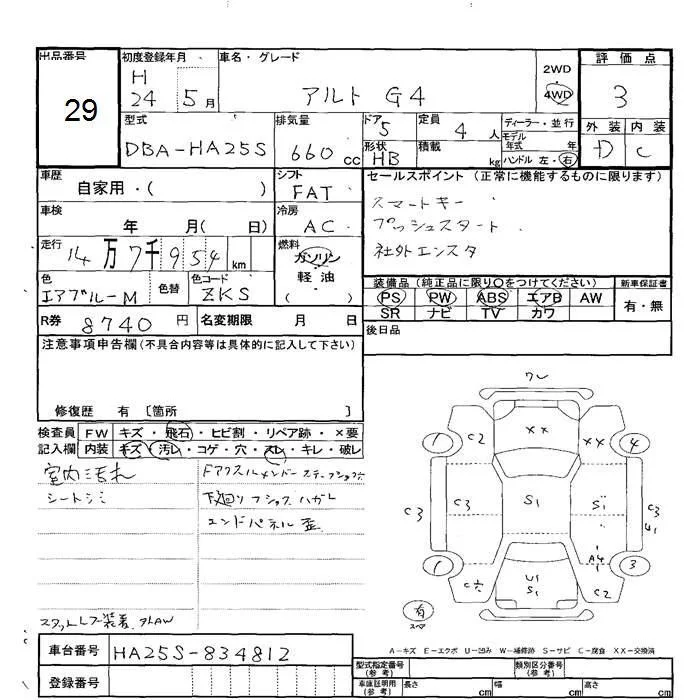 出品番号 初度登録年月 車名・グレード 2WD 評価点
29 H 24 5月 アルト G4 4WD 3
型式 排気量 ドア 定員 ディーラー・並行 外装 内装
DBA-HA25S 660cc 5 4人 モデル年式 年 D C
形状 HB 積載 kg ハンドル 左・右
車歴 シフト セールスポイント (正常に機能するものに限ります)
自家用・( ) FAT スマートキー
車検 冷房 プッシュスタート
年 月( 日) AC 社外エンスタ
走行 燃料
14万7千954km ガソリン
軽油
( )
色 色替 色コード 装備品 (純正品に限り○をつけてください) 新車保証書
エアブルーM ZKS PS PW ABS エアB AW 有・無
SR ナビ TV カワ
R券 8740円 名変期限 月 日 後日品
注意事項申告欄(不具合内容等は具体的に記入して下さい)
修復歴 有 [箇所 ]
検査員 FW キズ・飛石・ヒビ割・リペア跡・×要
記入欄 内装 キズ・汚レ・コゲ・穴・スレ・キレ・破レ
室内汚れ
シートシミ
下廻りフシャスハガレ
エンドパネル歪
スタットレス装着 アルAW
ワレ
1 C2 XX XX 4
C3 C3 S1 S1 C3
U1
A4
1 C穴 U1 C2 3
S1
有
スペア
A-キズ E-エクボ U-凹み W-補修跡 S-サビ C-腐食 XX-交換済
車台番号 HA25S-834812
登録番号
型式指定番号(参考) 類別区分番号(参考)
車庫証明用(参考) 長さ cm 幅 cm 高さ cm